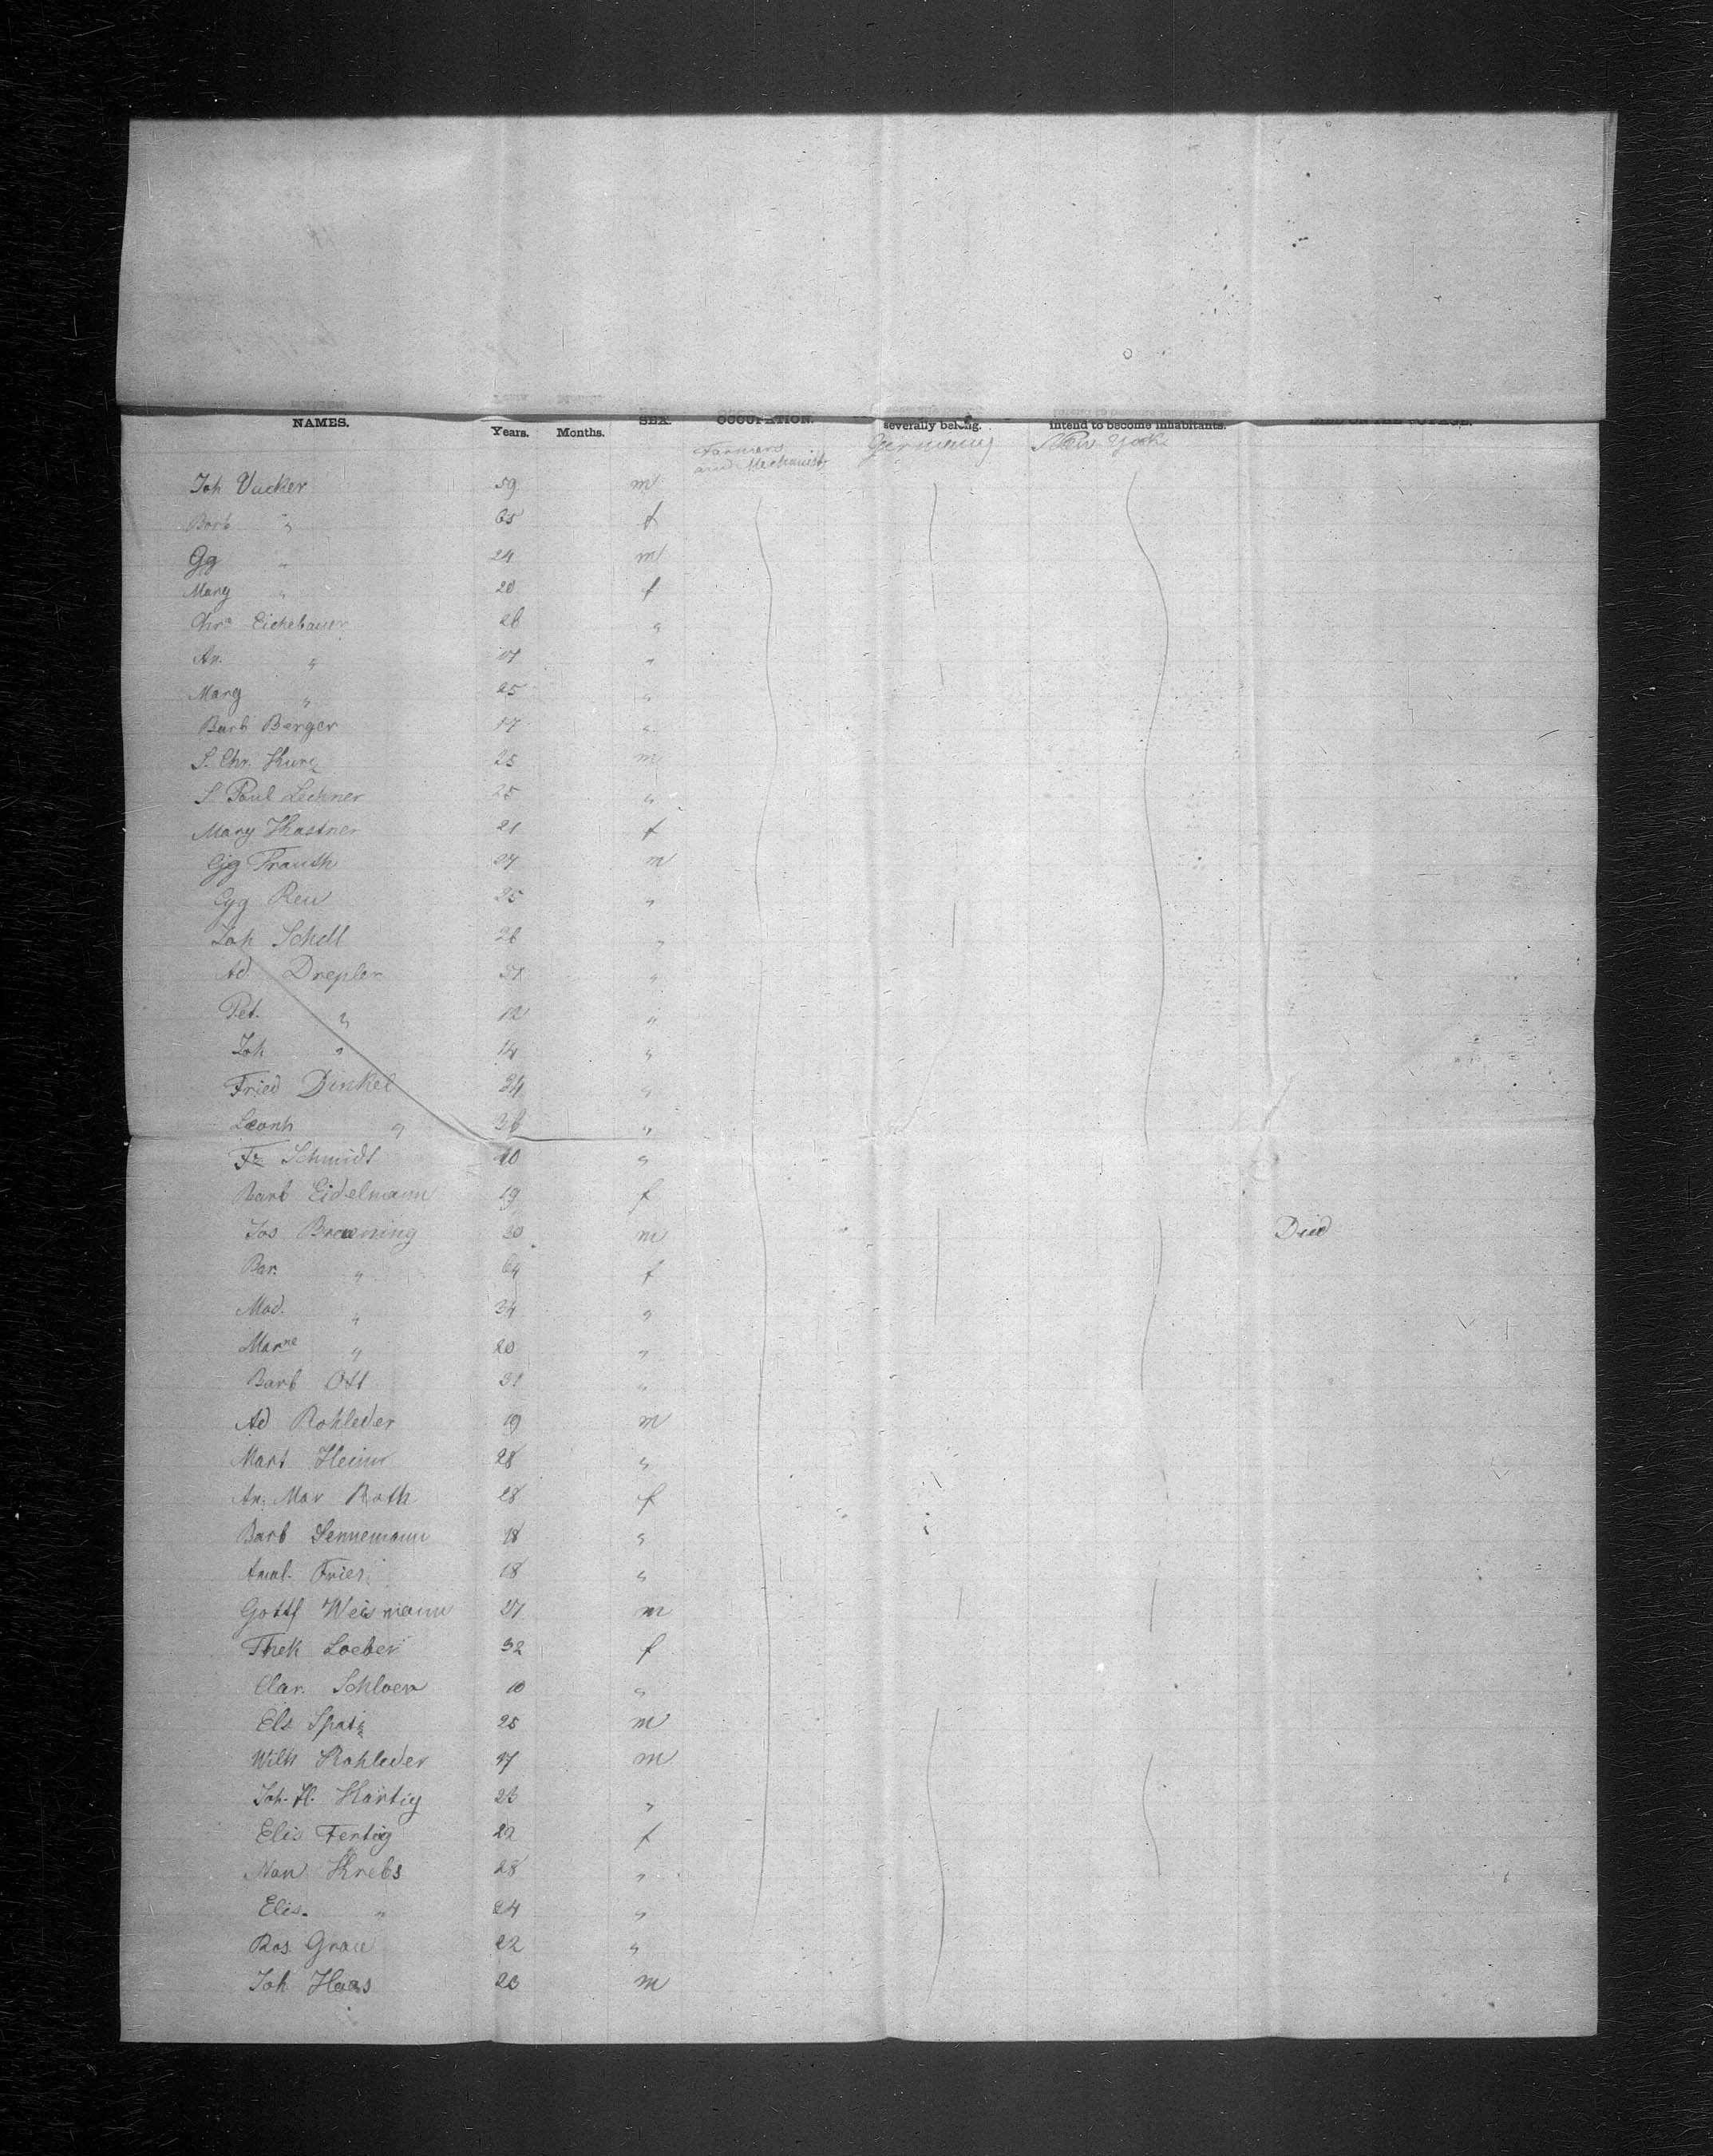 NAMES. Years. Months. SEX. OCCUPATION. severally belong. intend to become inhabitants. DIED ON THE VOYAGE.
Farmers and Mechanics Germany New York
Joh Vucker 59 m
Barb " 65 f
Gg " 24 m
Mary " 20 f
Chra Eichebauer 26 "
An. " 17 "
Mary " 25 "
Barb Berger 17 "
S. Chr. Kurz 25 m
S Paul Lechner 25 "
Mary Kastner 21 f
Gg Frauth 27 m
Gg Reu 25 "
Joh Schell 26 "
Ad. Drepler "
Pet. " 12 "
Joh " 14 "
Fried Dinkel 34 "
Leonh " 36 "
Fr Schmidt "
Barb Eidelmann 19 f
Jos Braeuning 30 m Died
Bar. " 64 f
Mad. " 34 "
Marne " 20 "
Barb Ott 31 "
Ad Rohleder 19 m
Mart Heim 28 "
An. Mar Roth 28 f
Barb Sennemann 18 "
Amal. Fries 18 "
Gottf Weismann 27 m
Thek Loeber 32 f
Clar. Schloer 10 "
Els Spatz 25 m
Wilh Rohleder 17 m
Joh. H. Hartig 23 "
Elis Fertig 22 f
Nan Krebs 28 "
Elis. " 24 "
Ros. Grau 22 "
Joh Haas 23 m